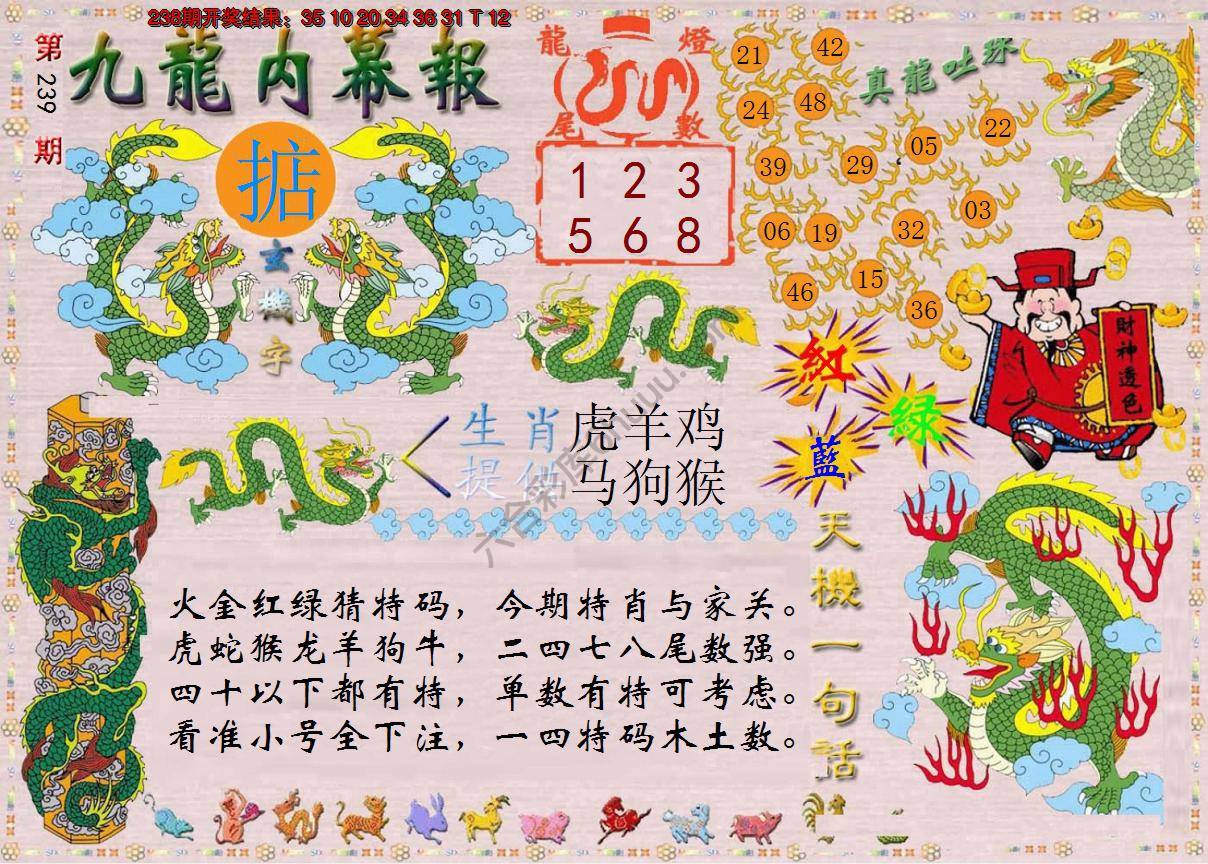 238期开奖结果：35 10 20 34 36 31 T 12
第239期
九龍内幕報
掂
玄機字
龍燈
尾數
1 2 3
5 6 8
真龍吐珠
21
42
24
48
39
29
05
22
06
19
32
03
46
15
36
財神透色
紅
綠
藍
生肖 虎羊鸡
提供 马狗猴
天機一句話
火金红绿猜特码，今期特肖与家关。
虎蛇猴龙羊狗牛，二四七八尾数强。
四十以下都有特，单数有特可考虑。
看准小号全下注，一四特码木土数。